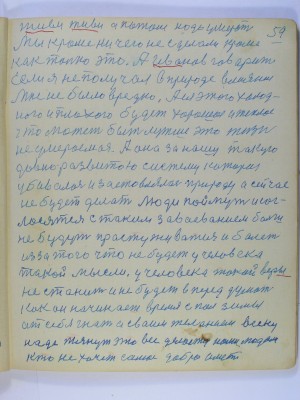 живи живи а потом ходи умирай 59
Мы кроме ничего не сделали нужно
как только это. А Иванов говорит
если я не получал в природе
мне не было вредно, А от этого холод-
ного и плохого будет хорошее и теплое
что может быть лучше это жизнь
не умираемая. А она за нашу такую
давно развитою систему которая
убивала и заставляла природу а сейчас
не будет делать люди поймут и сог-
лосятся с таким завоеванием больше
не будут простуживатся и болет
из за того что не будет у человека
такой мысли, у человека такой
не станит и не будет вперед думат.
Как он начинает время с
от себя гнат и своим весну
надо тянут это все людями
кто не хочет самое добро имет